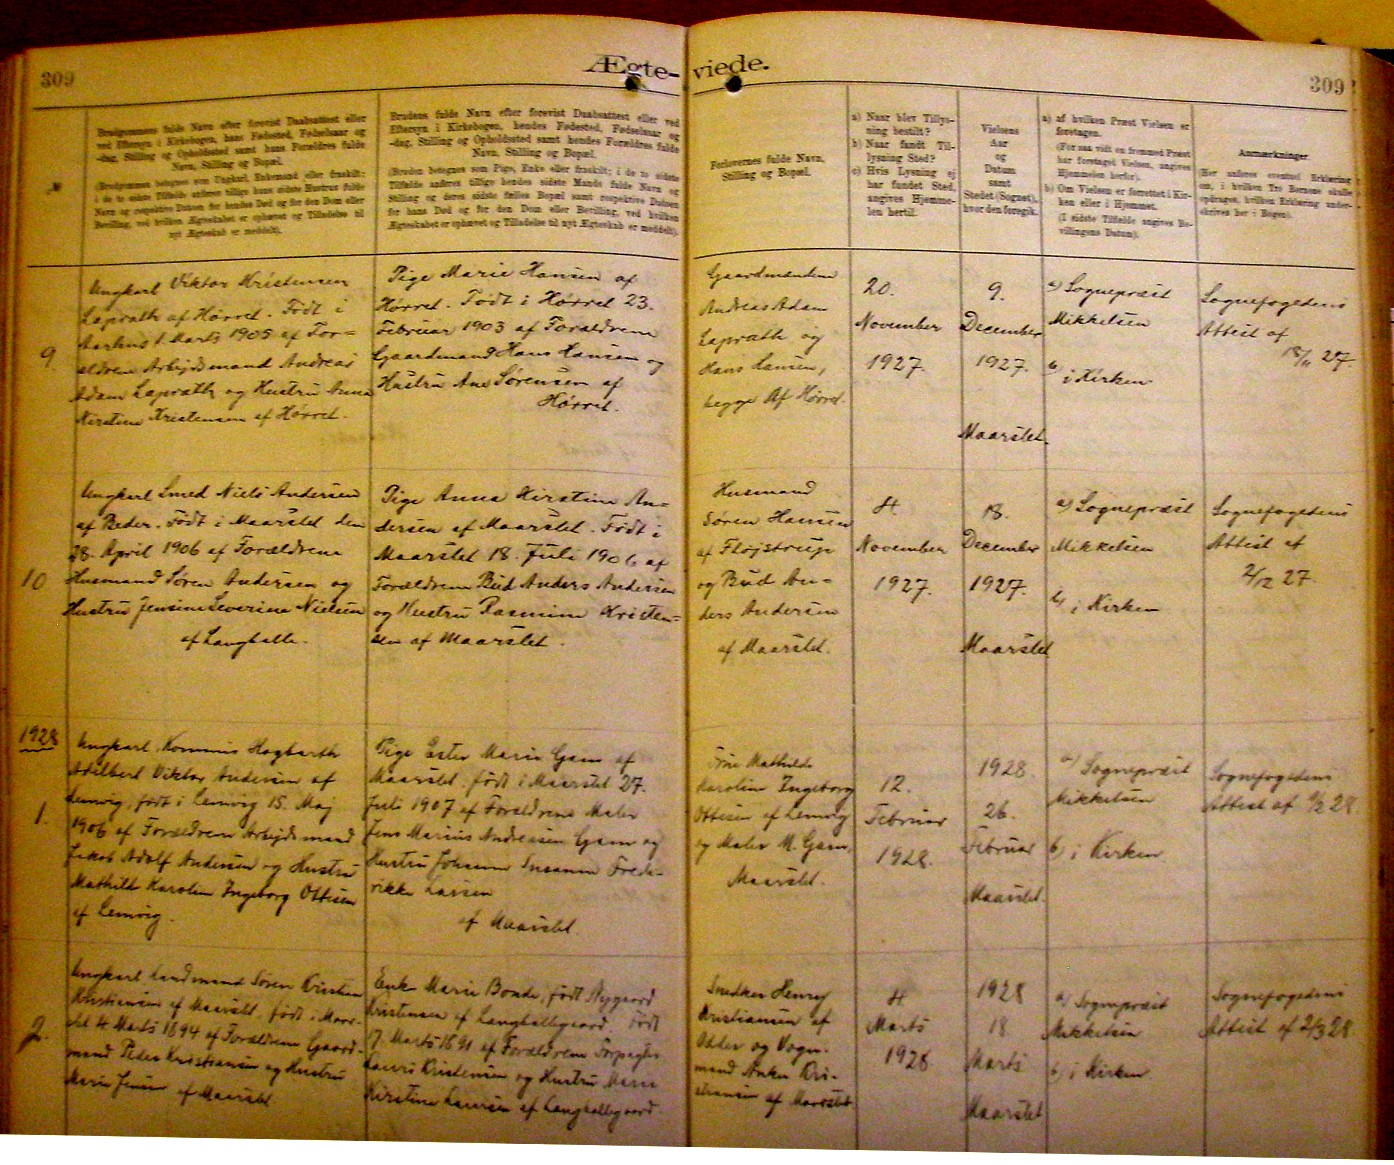 309
Ægte-
viede.
309
Brudgommens fulde Navn efter forevist Daabsattest eller
ved Eftersyn i Kirkebogen, hans Fødested, Fødselsaar og
-dag, Stilling og Opholdssted samt hans Forældres fulde
Navn, Stilling og Bopæl.
(Brudgommen betegnes som Ungkarl, Enkemand eller fraskilt;
i de to sidste Tilfælde anføres tillige hans sidste Hustrus fulde
Navn og respektive Datoen for hendes Død og for den Dom eller
Bevilling, ved hvilken Ægteskabet er ophævet og Tilladelse til
nyt Ægteskab er meddelt).
Brudens fulde Navn efter forevist Daabsattest eller ved
Eftersyn i Kirkebogen, hendes Fødested, Fødselsaar og
-dag, Stilling og Opholdssted samt hendes Forældres fulde
Navn, Stilling og Bopæl.
(Bruden betegnes som Pige, Enke eller fraskilt; i de to sidste
Tilfælde anføres tillige hendes sidste Mands fulde Navn og
Stilling og deres sidste fælles Bopæl samt respektive Datoen
for hans Død og for den Dom eller Bevilling, ved hvilken
Ægteskabet er ophævet og Tilladelse til nyt Ægteskab er meddelt).
Forlovernes fulde Navn,
Stilling og Bopæl.
a) Naar blev Tillys-
ning bestilt?
b) Naar fandt Til-
lysning Sted?
c) Hvis Lysning ej
har fundet Sted,
angives Hjemme-
len hertil.
Vielsens
Aar
og
Datum
samt
Stedet (Sognet),
hvor den foregik.
a) af hvilken Præst Vielsen er
foretagen.
(For saa vidt en fremmed Præst
har foretaget Vielsen, angives
Hjemmelen herfor).
b) Om Vielsen er forrettet i Kir-
ken eller i Hjemmet.
(I sidste Tilfælde angives Be-
villingens Datum).
Anmærkninger
(Her anføres eventuel Erklæring
om, i hvilken Tro Børnene skulle
opdrages, hvilken Erklæring under-
skrives her i Bogen).
9
Ungkarl Viktor Kristensen
Laprath af Hørret. Født i
Aarhus 1. Marts 1905 af For-
ældrene Arbejdsmand Andreas
Adam Laprath og Hustru Anna
Kirstine Kristensen af Hørret.
Pige Marie Hansen af
Hørret. Født i Hørret 23.
Februar 1903 af Forældrene
Gaardmand Hans Hansen og
Hustru Ane Sørensen af
Hørret.
Gaardmændene
Andreas Adam
Laprath og
Hans Hansen,
begge af Hørret.
20.
November
1927.
9.
December
1927.
Maarslet.
a) Sognepræst
Mikkelsen
b)
i Kirken
Sognefogedens
Attest af
18/11 27.
10
Ungkarl Smed Niels Andersen
af Beder. Født i Maarslet den
28. April 1906 af Forældrene
Husmand Søren Andersen og
Hustru Jensine Severine Nielsen
af Langballe.
Pige Anna Kirstine An-
dersen af Maarslet. Født i
Maarslet 18. Juli 1906 af
Forældrene Bud Anders Andersen
og Hustru Rasmine Kristen-
sen af Maarslet.
Husmand
Søren Hansen
af Fløjstrup
og Bud An-
ders Andersen
af Maarslet.
4
November
1927.
18.
December
1927.
Maarslet
a) Sognepræst
Mikkelsen
b) i Kirken
Sognefogedens
Attest af
2/12 27.
1928
1.
Ungkarl, Kommis Hagbarth
Adelbert Viktor Andersen af
Lemvig, født i Lemvig 15. Maj
1906 af Forældrene Arbejdsmand
Jakob Adolf Andersen og Hustru
Mathilde Karoline Ingeborg Ottesen
af Lemvig.
Pige Ester Marie Gam af
Maarslet, født i Maarslet 27.
Juli 1907 af Forældrene Maler
Jens Marius Andreasen Gam og
Hustru Johanne Susanne Frede-
rikke Larsen
af Maarslet.
Frue Mathilde
Karoline Ingeborg
Ottesen af Lemvig
og Maler M. Gam,
Maarslet.
12.
Februar
1928.
1928.
26.
Februar
Maarslet.
a) Sognepræst
Mikkelsen
b) i Kirken.
Sognefogedens
Attest af 28.
2.
Ungkarl Landmand Søren Kristian
Kristiansen af Maarslet, født i Maar-
slet 4 Marts 1894 af Forældrene Gaard-
mand Peder Kristiansen og Hustru
Marie Jensen af Maarslet
Enke Marie Bonde, født Nygaard
Kristensen af Langballegaard. Født
17. Marts 1891 af Forældrene Forpagter
Laurs Kristensen og Hustru Marie
Kirstine Laursen af Langballegaard.
Snedker Henry
Kristiansen af
Odder og Vogn-
mand Anker Kri-
stiansen af Maarslet
4
Marts
1928
1928
18
Marts
Maarslet
a) Sognepræst
Mikkelsen
b) i Kirken.
Sognefogedens
Attest af 2/3 28.